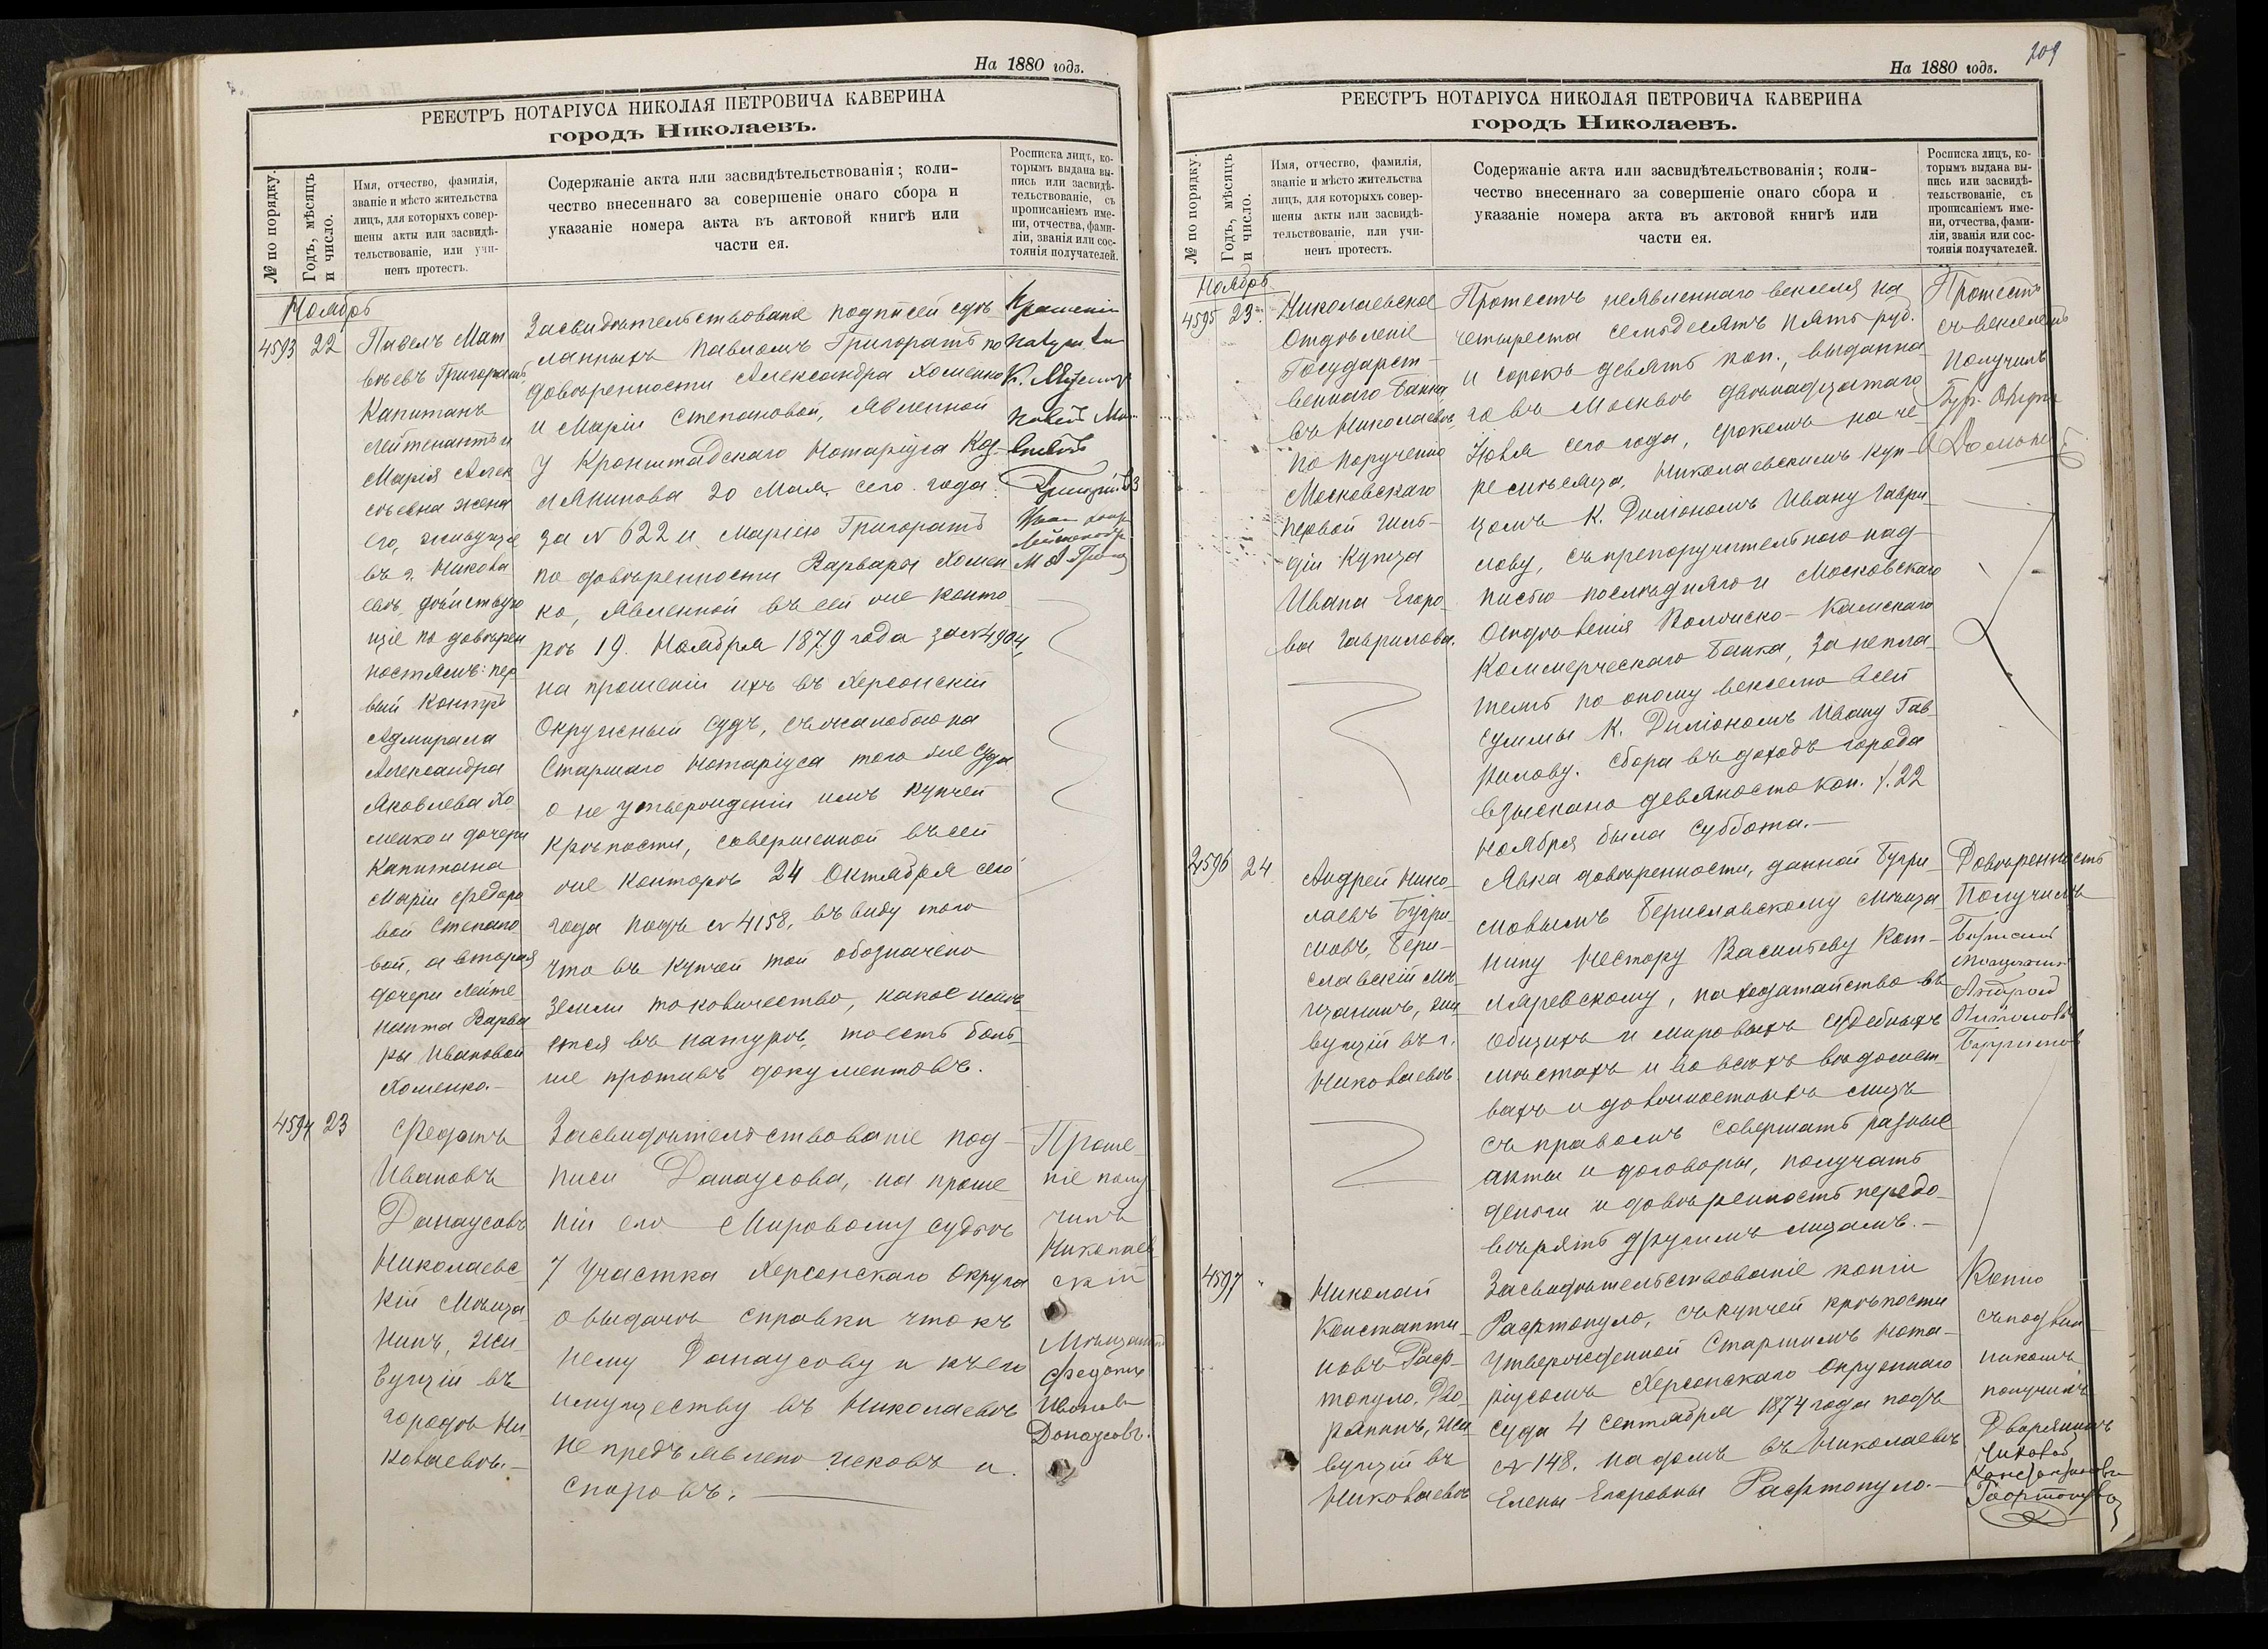 На 1880 годъ.
РЕЕСТРЪ НОТАРІУСА НИКОЛАЯ ПЕТРОВИЧА КАВЕРИНА
городъ Николаевъ.
№ по порядку.
Годъ, мѣсяцъ
и число.
Имя, отчество, фамилія,
званіе и мѣсто жительства
лицъ, для которыхъ совер-
шены акты или засвидѣ-
тельствованіе, или учи-
ненъ протестъ.
Содержаніе акта или засвидѣтельствованія; коли-
чество внесеннаго за совершеніе онаго сбора и
указаніе номера акта въ актовой книгѣ или
части ея.
Росписка лицъ, ко-
торымъ выдана вы-
пись или засвидѣ-
тельствованіе, съ
прописаніемъ име-
ни, отчества, фами-
ліи, званія или сос-
тоянія получателей.
Ноябрь
4593
22
Павелъ Мат
вѣевъ Григорашъ,
Капитанъ
Лейтенантъ и
Марія Алек
сѣевна жена
его, живущіе
въ г. Никола
евѣ, дѣйствую
щіе по довѣрен
ностямъ: пер
вый Контръ
Адмирала
Александра
Яковлева Хо
менко и дочери
Капитана
Маріи Федоро
вой Степано
вой, а вторая
дочери Лейте
нанта Варва
ры Ивановой
Хоменко.—
Засвидѣтельствованіе подписей сдѣ
ланныхъ Павломъ Григорашъ по
довѣренности Александра Хоменко
и Маріи Степановой, явленной
у Кронштадскаго Нотаріуса Коз-
лянинова 20 Мая, сего года
за № 622 и Маріею Григорашъ
по довѣренности Варвары Хомен
ко, явленной въ сей же конто
рѣ 19 Ноября 1879 года за № 4904,
на прошеніи ихъ въ Херсонскій
Окружный Судъ, съ жалобою на
Старшаго Нотаріуса того же Суда
о не утвержденіи имъ купчей
крѣпости, совершенной въ сей
же Конторѣ 24 Октября сего
года подъ № 4158, въ виду того
что въ купчей той обозначено
земли то количество, какое имѣ
ется въ натурѣ, то есть боль
ше противъ документовъ.
Прошеніе
получилъ
4594
23
Федотъ
Ивановъ
Данаусовъ
Николаевс
кій Мѣща
нинъ, жи
вущій въ
городѣ Ни
колаевѣ.—
Засвидѣтельствованіе под-
писи Данаусова, на проше
ніи его Мировому Судьѣ
7 Участка Херсонскаго Округа
о выдачѣ справки что къ
нему Данаусову и къ его
имуществу въ Николаевѣ
не предъявлено исковъ и
споровъ.
Проше
ніе полу
чилъ
Николаев
скій
Мѣщанинъ
Федотъ
Ивановъ
Данаусовъ.
На 1880 годъ.
209
РЕЕСТРЪ НОТАРІУСА НИКОЛАЯ ПЕТРОВИЧА КАВЕРИНА
городъ Николаевъ.
№ по порядку.
Годъ, мѣсяцъ
и число.
Имя, отчество, фамилія,
званіе и мѣсто жительства
лицъ, для которыхъ совер-
шены акты или засвидѣ-
тельствованіе, или учи-
ненъ протестъ.
Содержаніе акта или засвидѣтельствованія; коли-
чество внесеннаго за совершеніе онаго сбора и
указаніе номера акта въ актовой книгѣ или
части ея.
Росписка лицъ, ко-
торымъ выдана вы-
пись или засвидѣ-
тельствованіе, съ
прописаніемъ име-
ни, отчества, фами-
ліи, званія или сос-
тоянія получателей.
Ноябрь
4595
23
Николаевское
Отдѣленіе
Государст-
веннаго Банка,
въ Николаевѣ,
по порученію
Московскаго
первой гиль-
діи Купца
Ивана Егоро-
ва Гаврилова.
Протестъ неявленнаго векселя на
четыреста семьдесятъ пять руб.
и сорокъ девять коп., выданна-
го въ Москвѣ двѣнадцатаго
Іюля сего года, срокомъ на че-
ре мѣсяца, Николаевскимъ куп-
цомъ К. Диліономъ Ивану Гаври
лову, съ препоручительною над-
писью послѣдняго и Московскаго
Отдѣленія Волжско-Камскаго
Коммерческаго Банка, за непла-
тежъ по оному векселю всей
суммы К. Диліономъ Ивану Гав-
рилову. Сбора въ доходъ города
взыскано девяносто коп. /. 22
ноября была суббота.—
Протестъ
съ векселемъ
Получилъ
4596
24
Андрей Нико-
лаевъ Бугри-
мовъ, Бери-
славскій мѣ-
щанинъ, жи-
вущій въ г.
Николаевѣ.
Явка довѣренности, данной Бугри-
мовымъ Бериславскому мѣща-
нину Нестору Васильеву Кот-
ляревскому, на ходатайство въ
общихъ и мировыхъ судебныхъ
мѣстахъ и во всѣхъ вѣдомст-
вахъ и должностныхъ лицъ
съ правомъ совершать разные
акты и договоры, получать
деньги и довѣренность передо-
вѣрять другимъ лицамъ.—
Довѣренность
Получилъ
Андрей
4597
"
Николай
Константи-
новъ Раф-
топуло, Дво-
рянинъ, жи-
вущій въ
Николаевѣ
Засвидѣтельствованіе копіи
Рафтопуло, съ купчей крѣпости
утвержденной Старшимъ Нота-
ріусомъ Херсонскаго Окружнаго
Суда 4 сентября 1874 года подъ
№ 148, на домъ въ Николаевѣ
Елены Егоровны Рафтопуло.—
Копію
съ подлин
никомъ
получилъ
Дворянинъ
Николай
Константиновъ
Рафтопуло